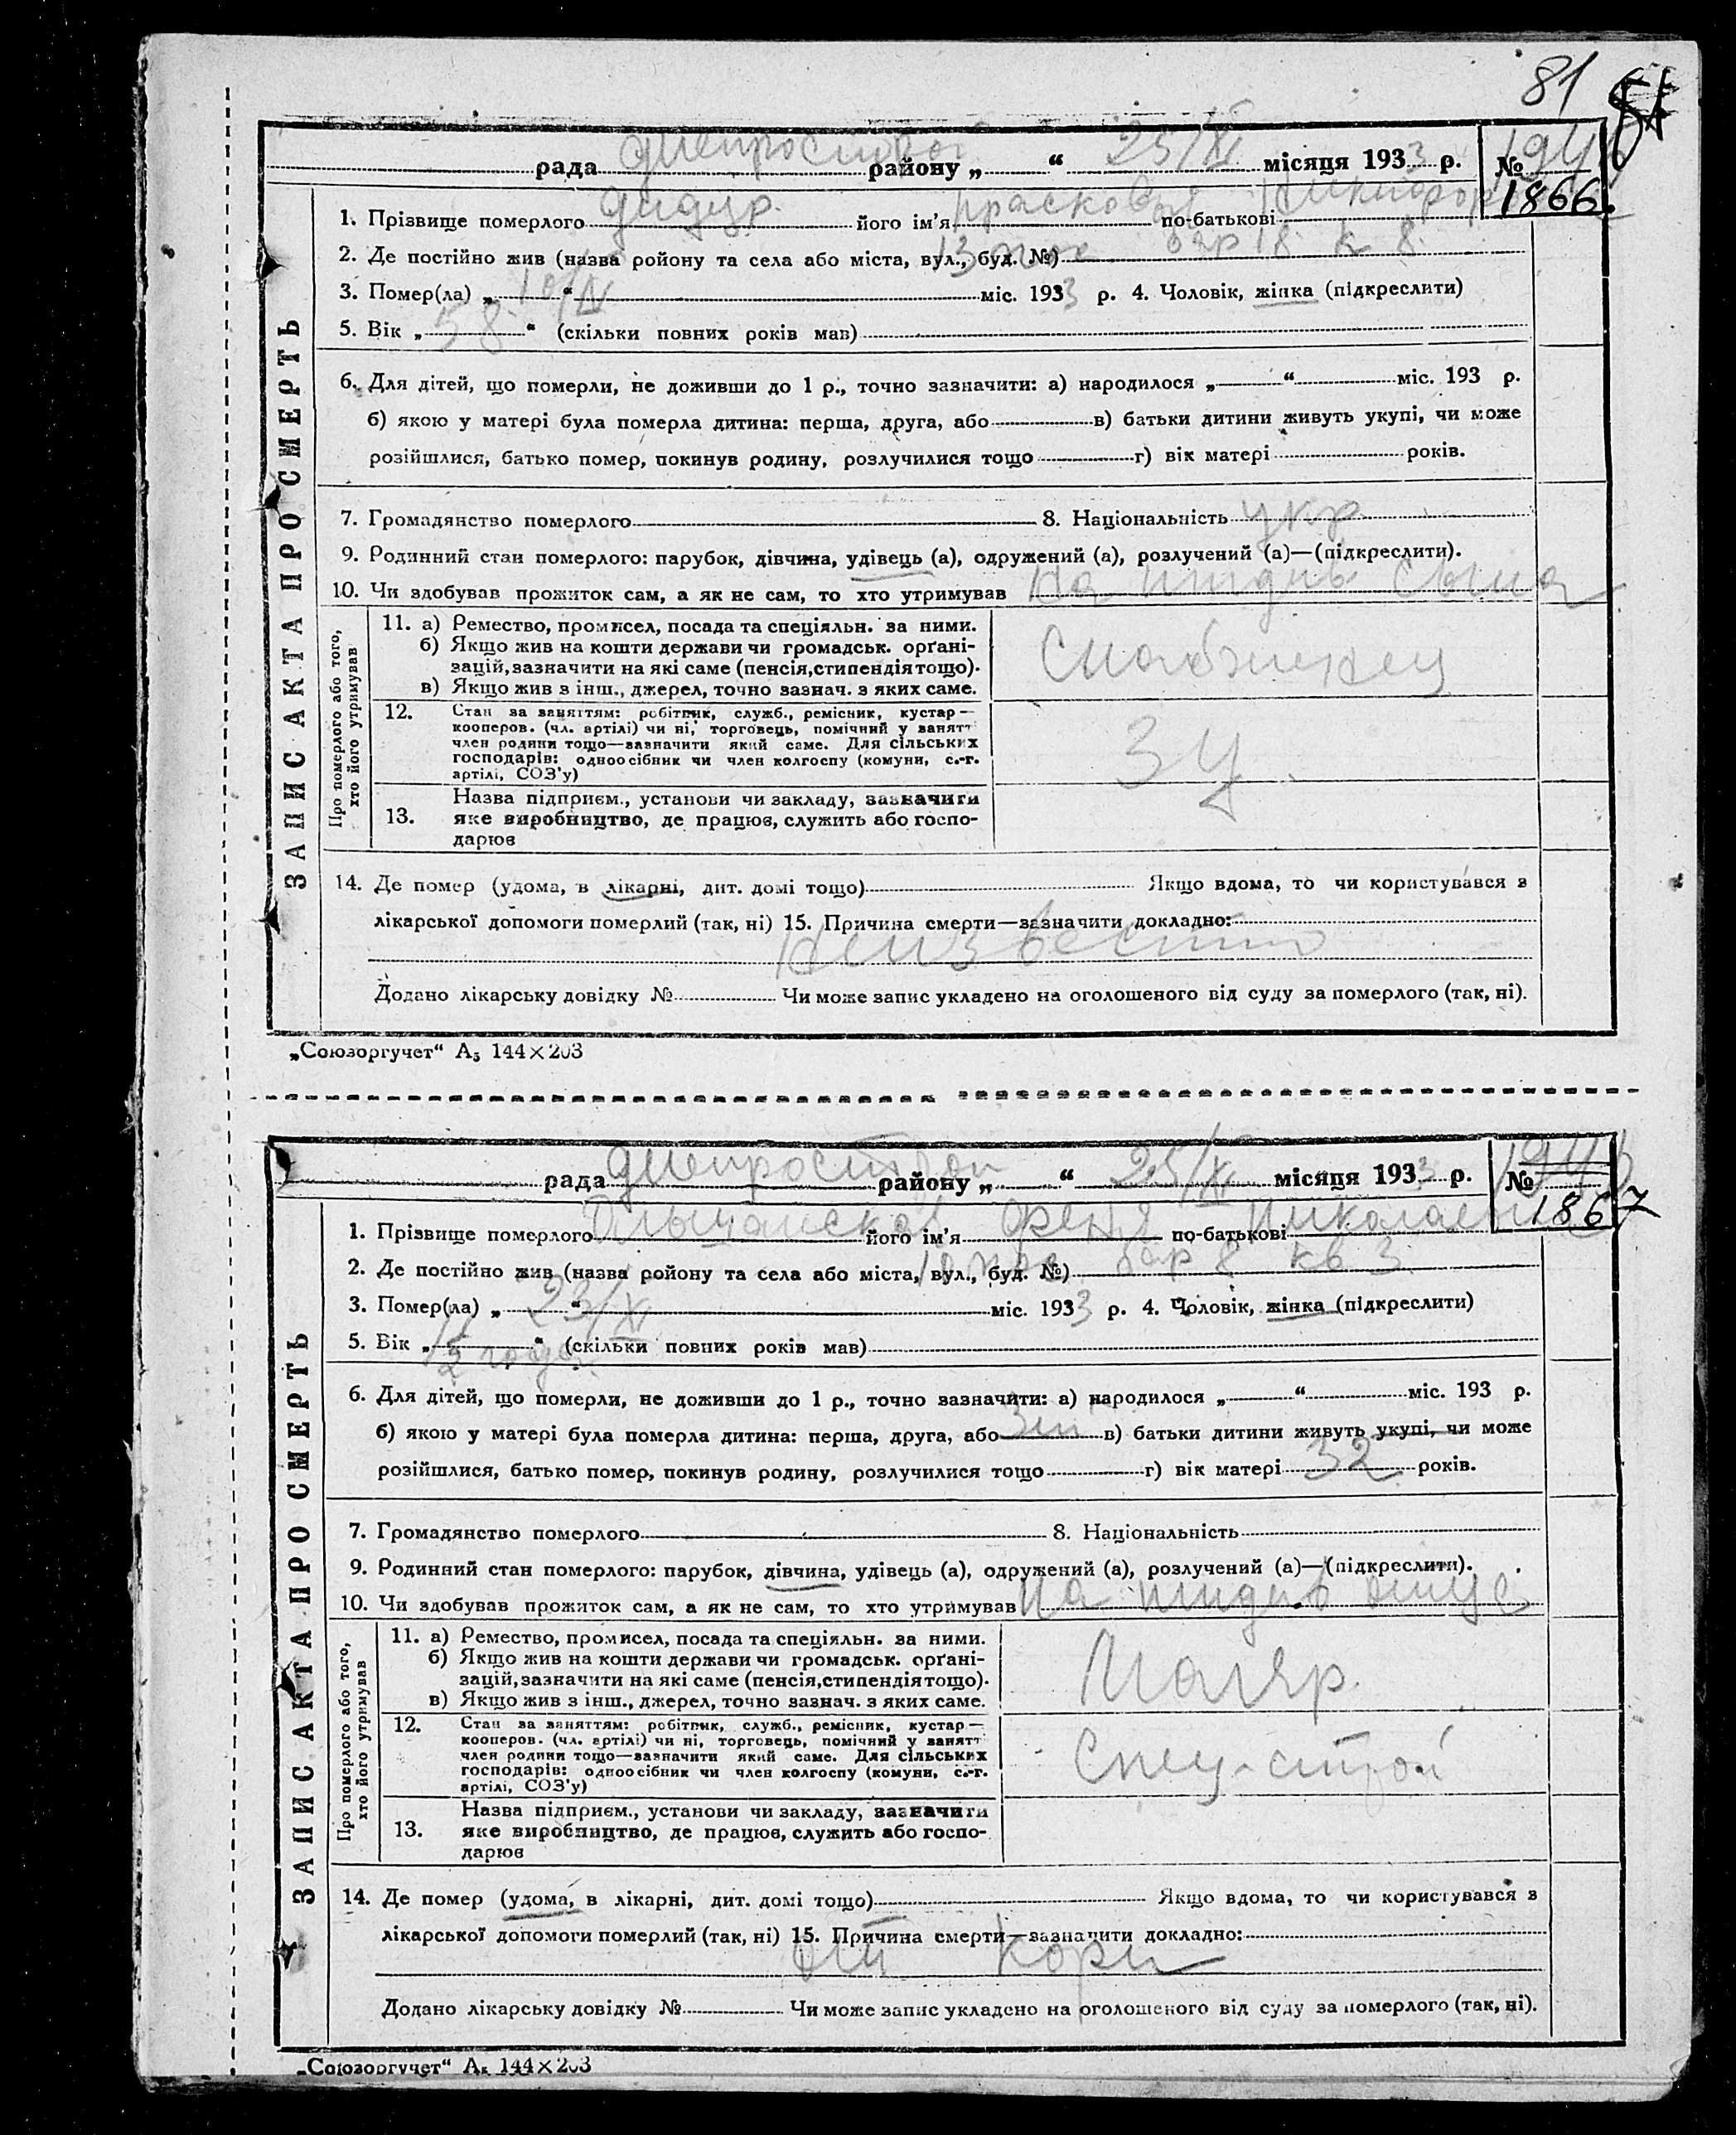 81
рада Днепрострой району „ “ 25/XI місяця 1933 р. №
1866.
1. Прізвище померлого Дидур його ім'я Прасковья по-батькові
2. Де постійно жив (назва ройону та села або міста, вул., буд. №) 13 пос бар 18 к 8.
3. Помер(ла) „ “ міс. 1933 р. 4. Чоловік, жінка (підкреслити)
5. Вік „58“ (скільки повних років мав)
6. Для дітей, що померли, не доживши до 1 р., точно зазначити: а) народилося „ “ міс. 193 р.
б) якою у матері була померла дитина: перша, друга, або в) батьки дитини живуть укупі, чи може
розійшлися, батько помер, покинув родину, розлучилися тощо г) вік матері років.
7. Громадянство померлого 8. Національність укр
9. Родинний стан померлого: парубок, дівчина, удівець (а), одружений (а), розлучений (а)—(підкреслити).
10. Чи здобував прожиток сам, а як не сам, то хто утримував На иждив сына
ЗАПИС АКТА ПРО СМЕРТЬ
Про померлого або того,
хто його утримував
11. а) Ремество, промисел, посада та спеціяльн. за ними.
б) Якщо жив на кошти держави чи громадськ. орґані-
зацій, зазначити на які саме (пенсія, стипендія тощо).
в) Якщо жив з інш., джерел, точно зазнач. з яких саме.
Снабженец
12. Стан за заняттям: робітник, служб., ремісник, кустар—
кооперов. (чл. артілі) чи ні, торговець, помічний у занятт
член родини тощо—зазначити який саме. Для сільських
господарів: одноосібник чи член колгоспу (комуни, с.-г.
артілі, СОЗ'у)
ЗУ
13. Назва підприєм., установи чи закладу, зазначити
яке виробництво, де працює, служить або госпо-
дарює
14. Де помер (удома, в лікарні, дит. домі тощо) Якщо вдома, то чи користувався з
лікарської допомоги померлий (так, ні) 15. Причина смерти—зазначити докладно:
Неизвестно
Додано лікарську довідку № Чи може запис укладено на оголошеного від суду за померлого (так, ні).
„Союзоргучет“ А₅ 144×203
рада Днепрострой району „ “ 25/XI місяця 1933 р. №
1867
1. Прізвище померлого його ім'я Феня по-батькові
2. Де постійно жив (назва ройону та села або міста, вул., буд. №) 10 пос бар 8 кв 3
3. Помер(ла) „23/XI“ міс. 1933 р. 4. Чоловік, жінка (підкреслити)
5. Вік „2 года“ (скільки повних років мав)
6. Для дітей, що померли, не доживши до 1 р., точно зазначити: а) народилося „ “ міс. 193 р.
б) якою у матері була померла дитина: перша, друга, або в) батьки дитини живуть укупі, чи може
розійшлися, батько помер, покинув родину, розлучилися тощо г) вік матері 32 років.
7. Громадянство померлого 8. Національність
9. Родинний стан померлого: парубок, дівчина, удівець (а), одружений (а), розлучений (а)—(підкреслити).
10. Чи здобував прожиток сам, а як не сам, то хто утримував На иждив отца
ЗАПИС АКТА ПРО СМЕРТЬ
Про померлого або того,
хто його утримував
11. а) Ремество, промисел, посада та спеціяльн. за ними.
б) Якщо жив на кошти держави чи громадськ. орґані-
зацій, зазначити на які саме (пенсія, стипендія тощо).
в) Якщо жив з інш., джерел, точно зазнач. з яких саме.
Маляр.
12. Стан за заняттям: робітник, служб., ремісник, кустар—
кооперов. (чл. артілі) чи ні, торговець, помічний у занятт
член родини тощо—зазначити який саме. Для сільських
господарів: одноосібник чи член колгоспу (комуни, с.-г.
артілі, СОЗ'у)
Спец-строй
13. Назва підприєм., установи чи закладу, зазначити
яке виробництво, де працює, служить або госпо-
дарює
14. Де помер (удома, в лікарні, дит. домі тощо) Якщо вдома, то чи користувався з
лікарської допомоги померлий (так, ні) 15. Причина смерти—зазначити докладно:
от кори
Додано лікарську довідку № Чи може запис укладено на оголошеного від суду за померлого (так, ні).
„Союзоргучет“ А₅ 144×203